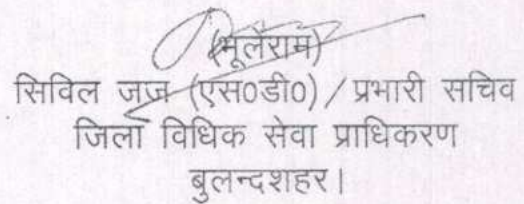 (भूलेराम)
सिविल जज (एस0डी0) / प्रभारी सचिव
जिला विधिक सेवा प्राधिकरण
बुलन्दशहर।